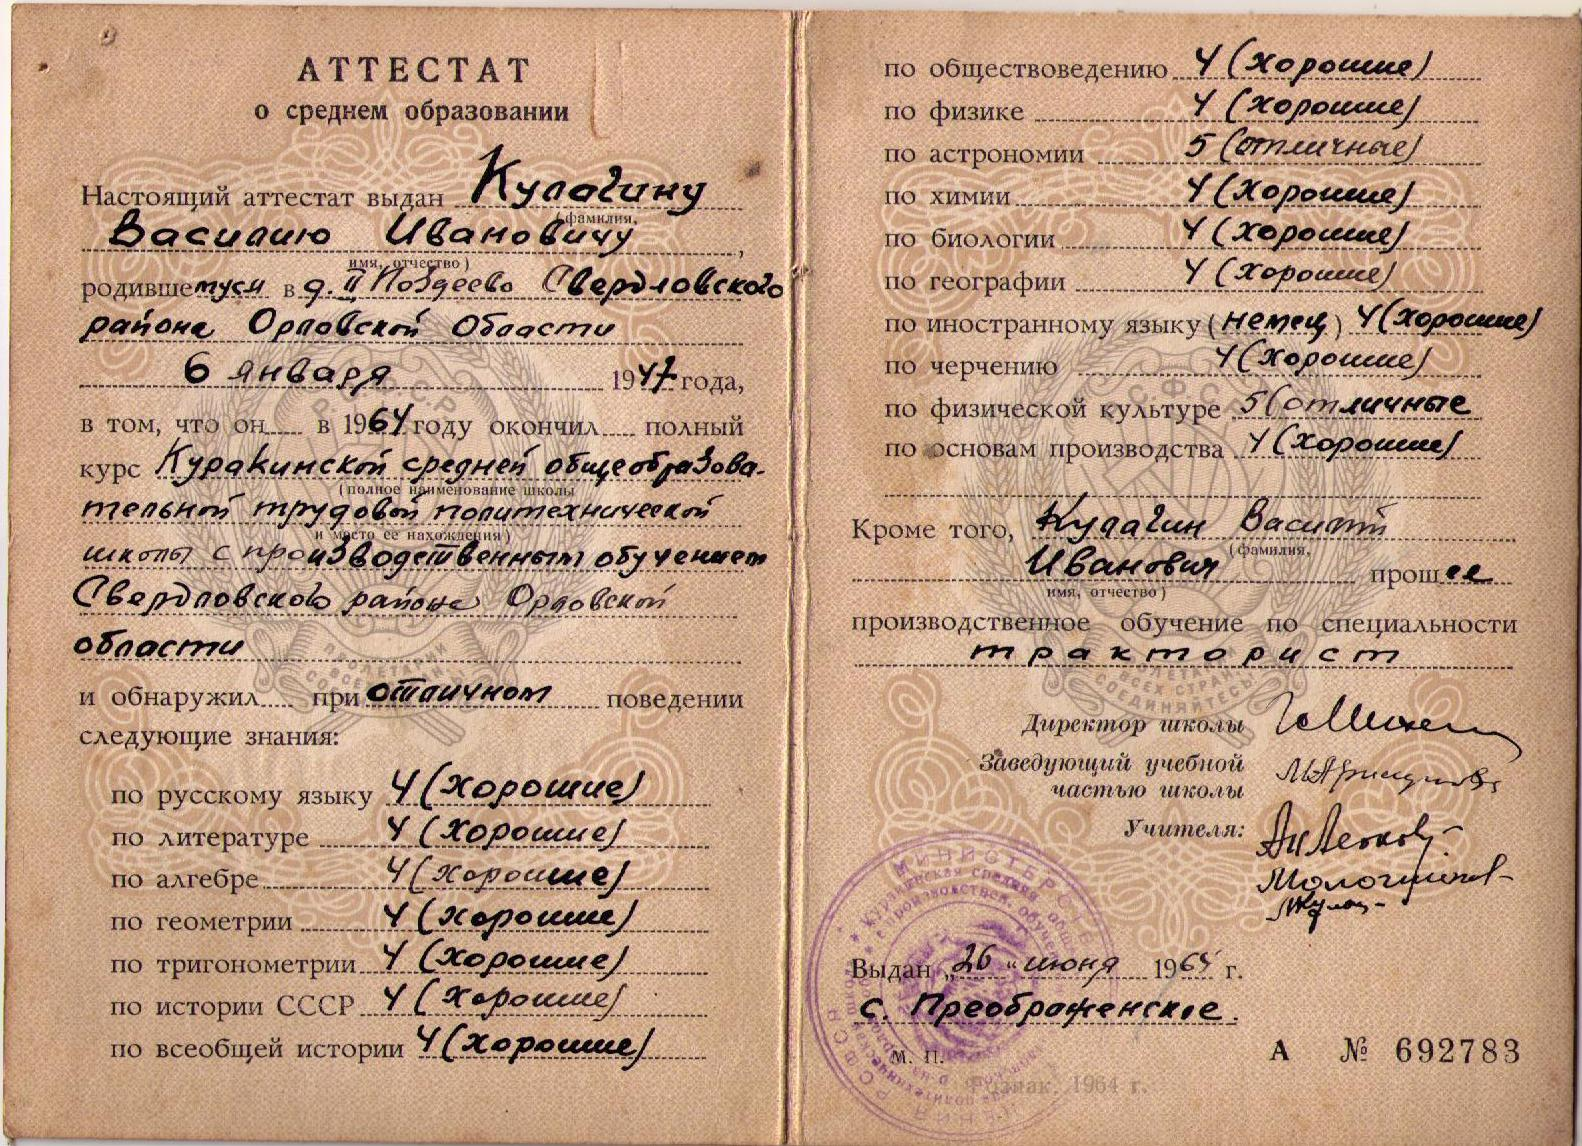 АТТЕСТАТ
о среднем образовании
Настоящий аттестат выдан Кулагину
(фамилия,
Василию Ивановичу,
имя, отчество)
родившемуся в д. II Поздеево Свердловского
района Орловской области
6 января 1947 года,
в том, что он в 1964 году окончил полный
курс Куракинской средней общеобразова-
(полное наименование школы
тельной трудовой политехнической
и место ее нахождения)
школы с производственным обучением
Свердловского района Орловской
области
и обнаружил при отличном поведении
следующие знания:
по русскому языку 4 (хорошие)
по литературе 4 (хорошие)
по алгебре 4 (хорошие)
по геометрии 4 (хорошие)
по тригонометрии 4 (хорошие)
по истории СССР 4 (хорошие)
по всеобщей истории 4 (хорошие)
по обществоведению 4 (хорошие)
по физике 4 (хорошие)
по астрономии 5 (отличные)
по химии 4 (хорошие)
по биологии 4 (хорошие)
по географии 4 (хорошие)
по иностранному языку (немец) 4 (хорошие)
по черчению 4 (хорошие)
по физической культуре 5 (отличные
по основам производства 4 (хорошие)
Кроме того, Кулагин Василий
(фамилия,
Иванович прошел
имя, отчество)
производственное обучение по специальности
тракторист
Директор школы
Заведующий учебной
частью школы
Учителя:
Выдан „26" июня 1964 г.
с. Преображенское.
М. П.
А № 692783
Гознак. 1964 г.